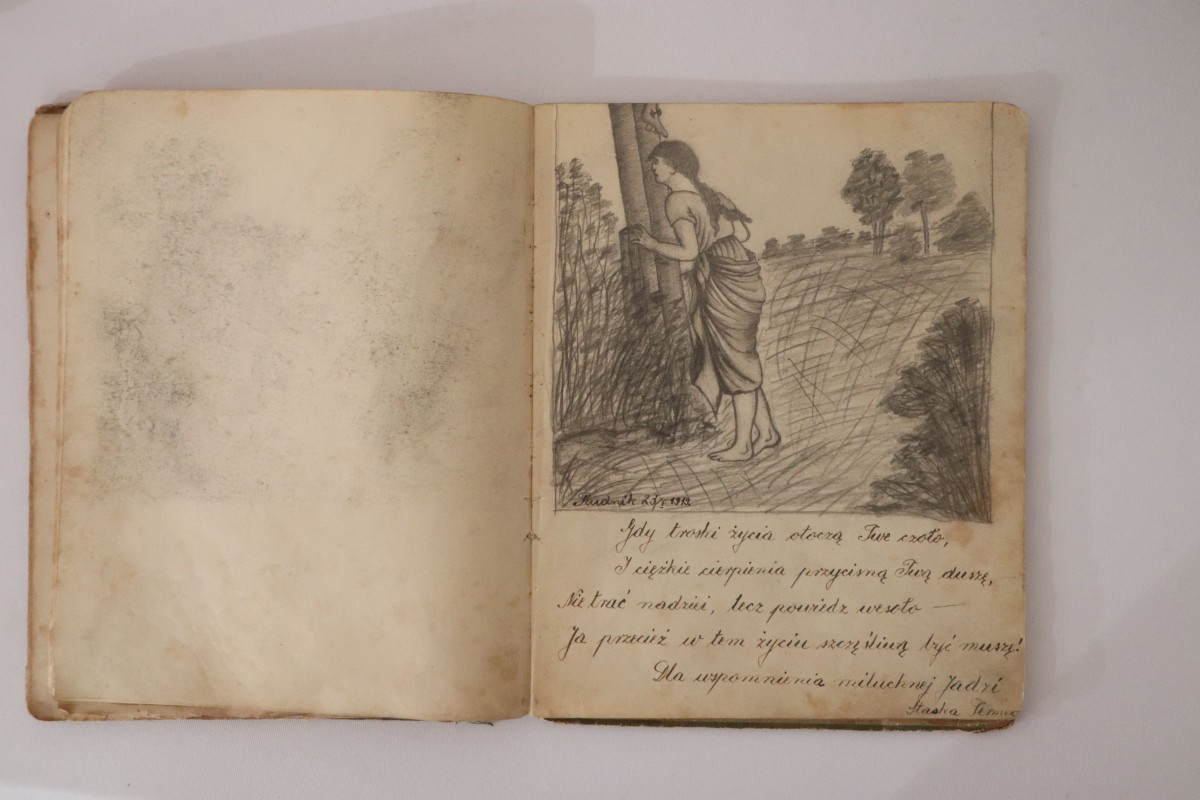 Rudnik 1913
Gdy troski życia otoczą Twe czoło,
I ciężkie cierpienia przycisną Twą duszę,
Nie trać nadziei, lecz powiedz wesoło —
Ja przecież w tem życiu szczęśliwą być muszę!
Dla wspomnienia miluchnej Jadzi
Staska